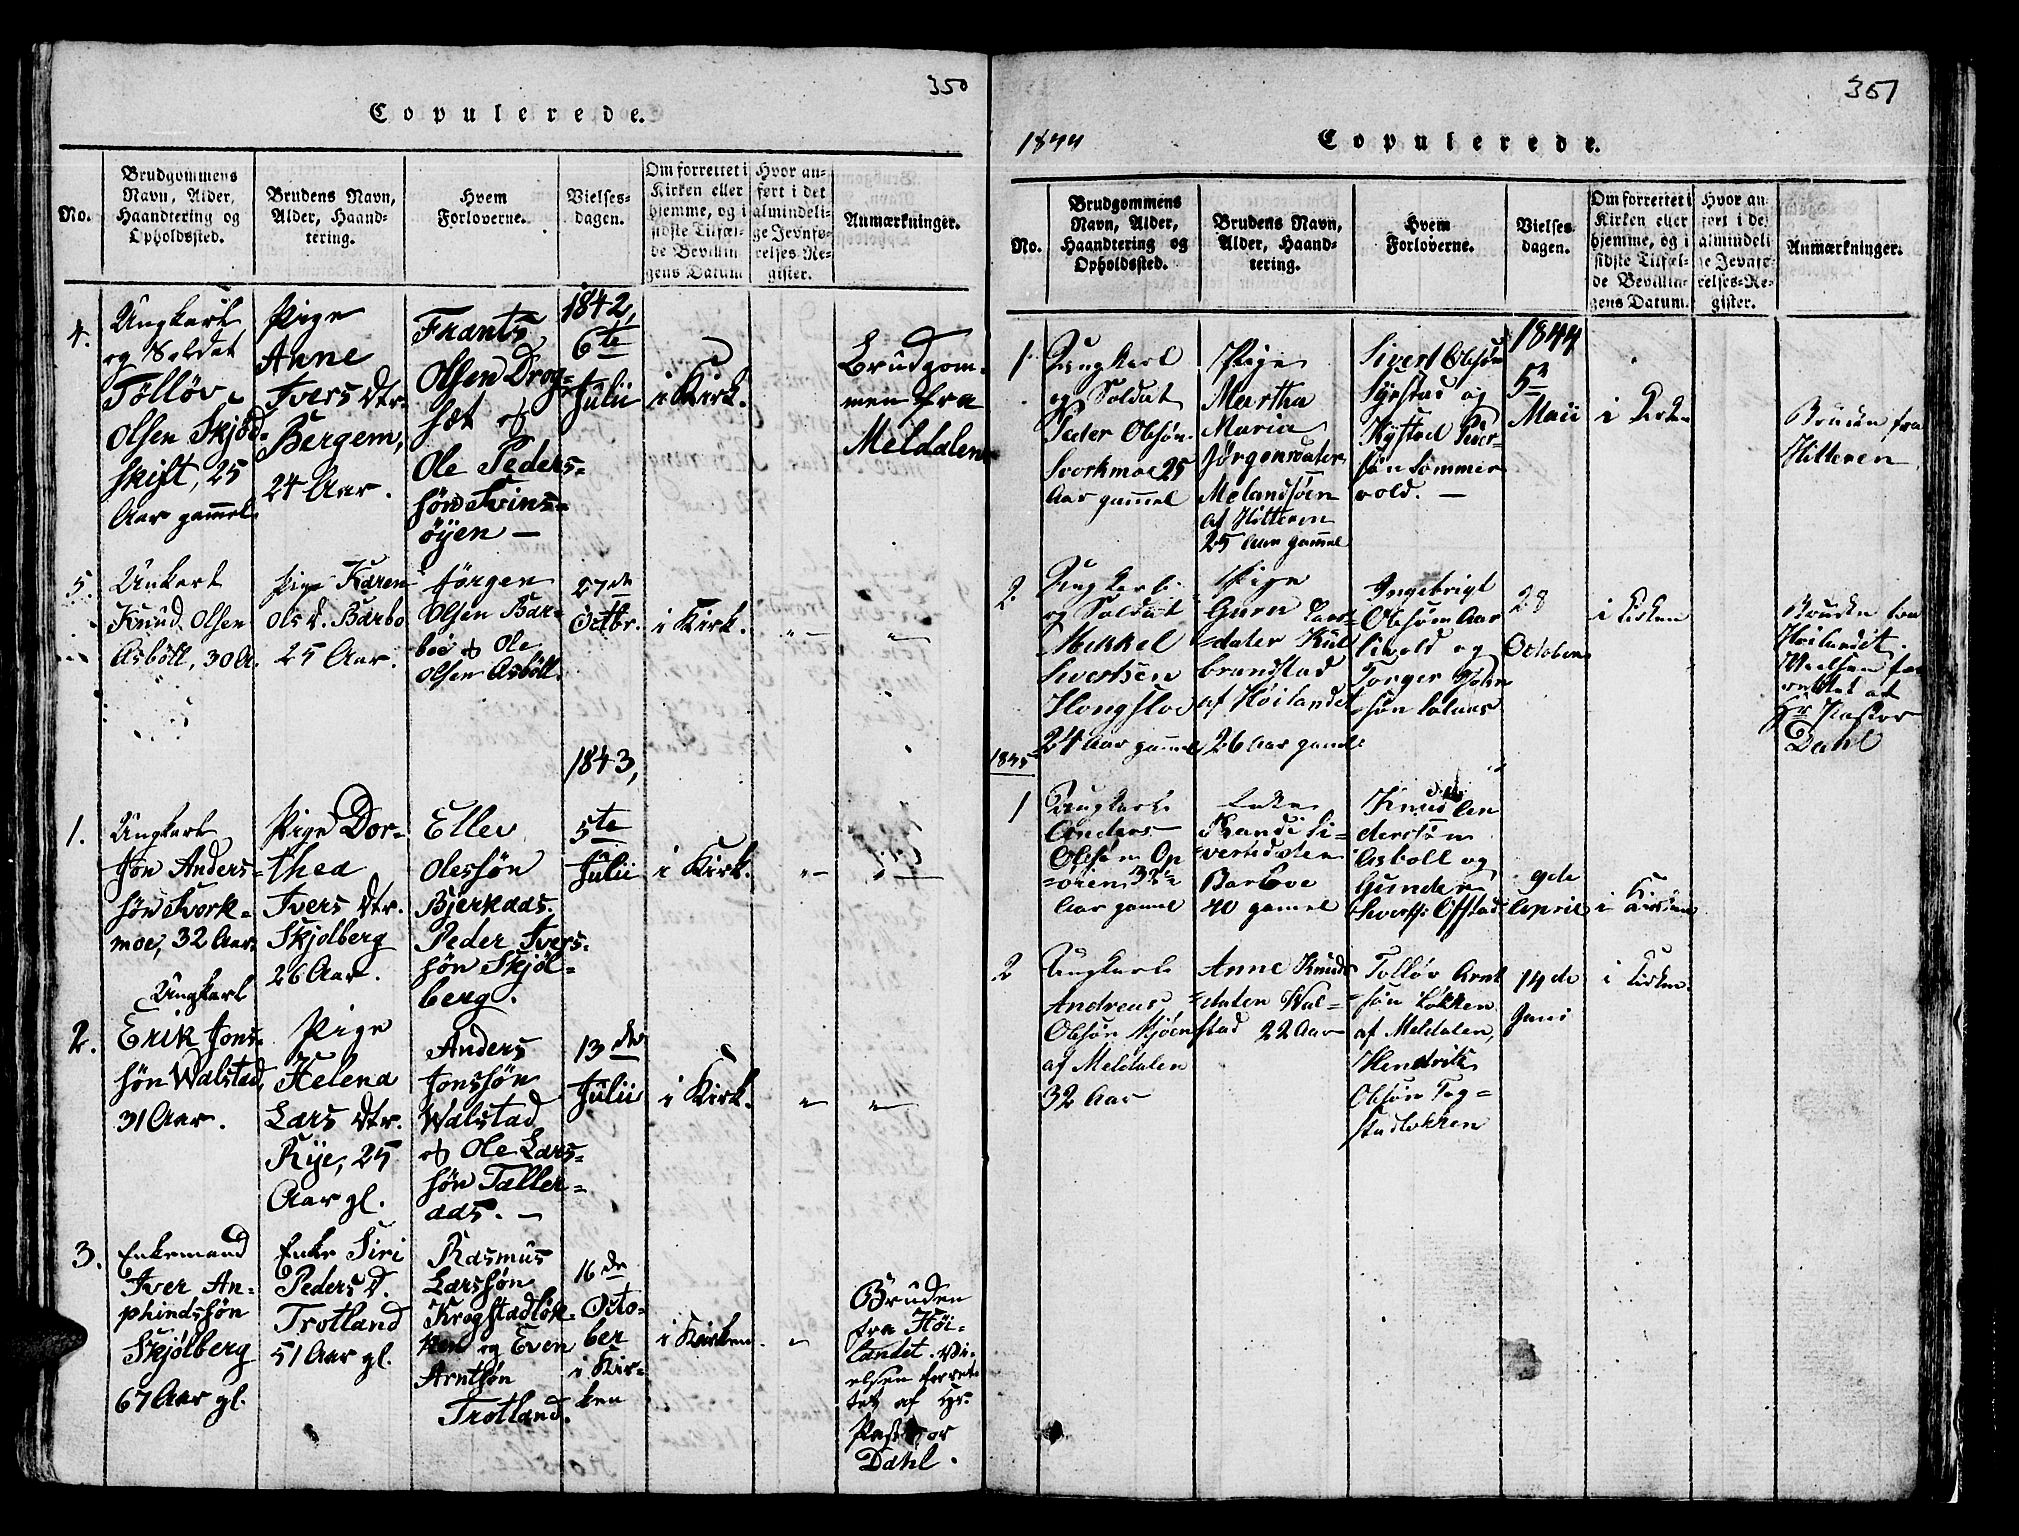 350
Copulerede.
No.
Brudgommens
Navn, Alder,
Haandtering og
Opholdssted.
Brudens Navn,
Alder, Haand-
tering.
Hvem
Forloverne.
Vielses-
dagen.
Om forrettet i
Kirken eller
hjemme, og i
sidste Tilfæl-
de Bevillin
gens Datum
Hvor an-
ført i det
almindeli-
ge Jevnfø-
relses-Re-
gister.
Anmærkninger.
4.
Ungkarl
og Soldat
Tølløv
Olsen Skjød-
skift, 25
Aar gammel
Pige
Anne
Ivers Dtr.
Bergem,
24 Aar.
Frants
Olsen Drog-
set og
Ole Peders-
søn Svins-
øyen —
1842,
6te
Julii
i Kirk.
Brudgom-
men fra
Meldalen
5.
Unkarl
Knud Olsen
Asbøll, 30 A.
Pige Karen
Ols D. Barbo
25 Aar.
Jørgen
Olsen Bar-
boe og Ole
Olsen Asbøll.
27de
Octbr.
i Kirk.
1843,
1.
Ungkarl
Jon Anders-
søn Svork-
moe, 32 Aar
Pige Dor-
thea
Ivers Dtr.
Skjølberg
26 Aar.
Ellev
Olessøn
Bjerkaas
Peder Ivers-
søn Skjøl-
berg.
5te
Julii
i Kirk.
2.
Ungkarl
Erik Jons-
søn Walstad,
31 Aar.
Pige
Helena
Lars Dtr.
Rye, 25
Aar gl.
Anders
Jonssøn
Walstad
og Ole Lars-
søn Tæller-
aas. —
13de
Julii
i Kirk.
3.
Enkemand
Iver An-
phindssøn
Skjølberg
67 Aar gl.
Enke Siri
Peders D.
Trotland
51 Aar gl.
Rasmus
Larssøn
Krogstadløk-
ken og Even
Arntsøn
Trotland.
16de
Octo-
ber
i Kir-
ken
i Kirken.
Bruden
fra Høi-
landet. Vi-
elsen forret-
tet af Hr.
Pastor
Dahl.
351
1844
Copulerede.
No.
Brudgommens
Navn, Alder,
Haandtering og
Opholdssted.
Brudens Navn,
Alder, Haand-
tering.
Hvem
Forloverne.
Vielses-
dagen.
Om forrettet i
Kirken eller
hjemme, og i
sidste Tilfæl-
de Bevillin-
gens Datum.
Hvor an
ført i det
almindeli
ge Jevnfø-
relses-Re-
gister.
Anmærkninger.
1.
Ungkarl
og Soldat
Peder Olsøn
Svorkmoe 25
Aar gammel
Pige
Martha
Maria
Jørgensdater
Melandsøen
af Hitteren
25 Aar gammel
Sivert Olsøn
Syrstad og
Kystad Peder-
søn Sommer
vold. —
1844
5
Maii
i Kirken
Bruden fra
Hitteren
2.
Ungkarl
og Soldat
Mikkel
Sivertsen
Hongsloe
24 Aar gammel
Pige
Guru
-dater Kul
brandstad
af Høilandet
26 Aar gamel
Ingebrigt
Olsøn Aar
livold og
Torger John
søn
28
October
i Kirken
Bruden fra
Høilandet.
Vielsen for
rettet af
Hr Pastor
Dahl
1845
1
Ungkarl
Anders
Olsøn Op
-øien 32
Aar gamel
Enke
Randi Si-
vertsdater
Barboe
40 gamel
Knud An
dersøn
Asboll og
Gunder
Siverts. Ofstad
9de
April
i Kirken
2
Ungkarl
Andreas
Olsøn Skjøen
af Meldalen
32 Aar
Anne Knuds
-dater Wal-
stad 22 Aar
Tolløv Arnt
-søn Løkken
af Meldalen,
Hendrik
Olsøn Tog-
stadløkken
14de
Juni
i Kirken